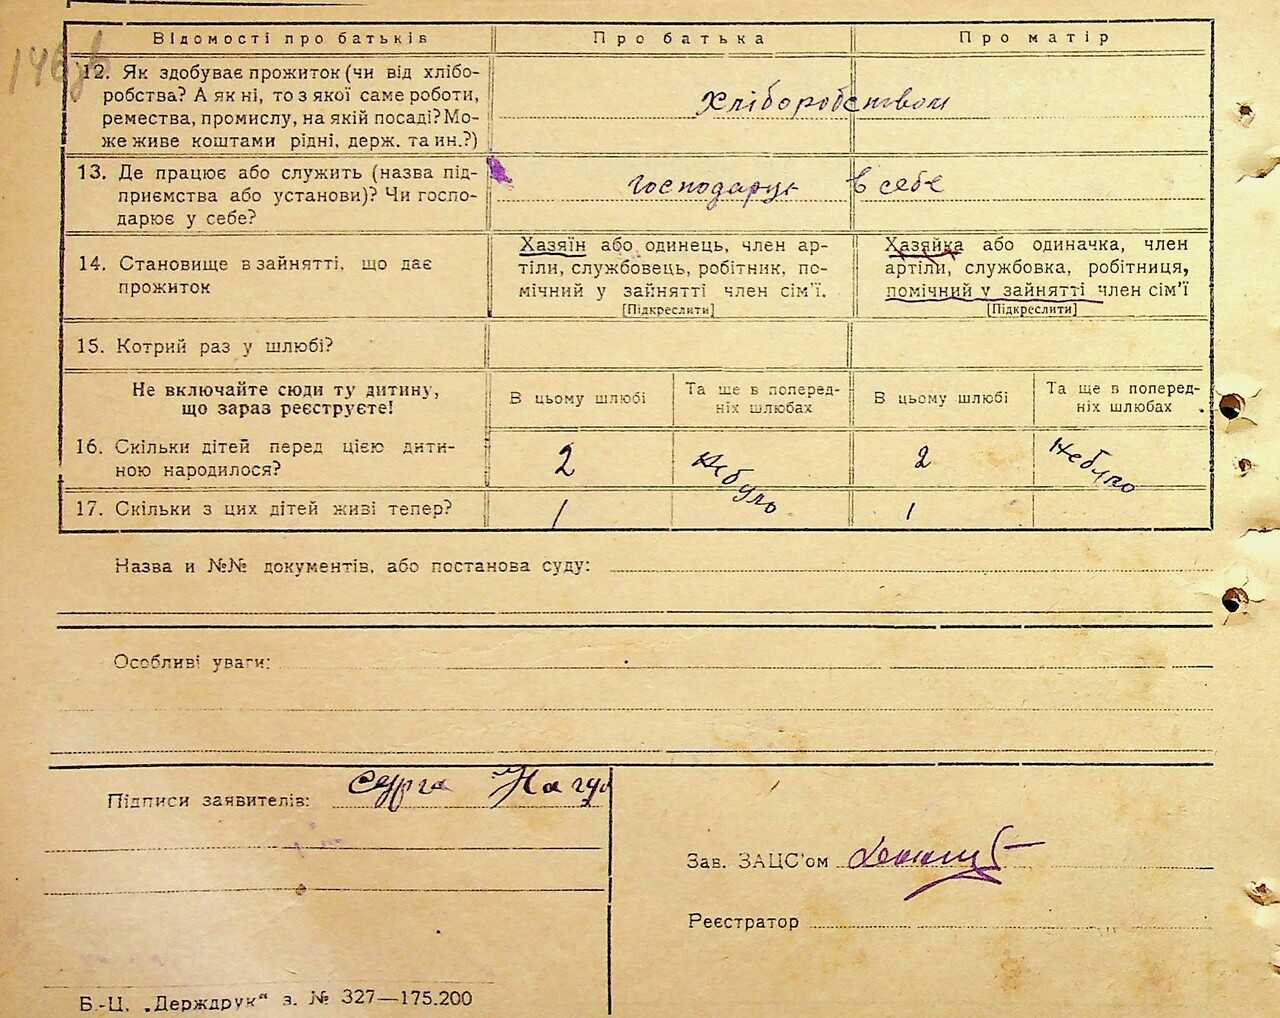 146 зв
Відомості про батьків
Про батька
Про матір
12. Як здобуває прожиток (чи від хлібо-
робства? А як ні, то з якої саме роботи,
ремества, промислу, на якій посаді? Мо-
же живе коштами рідні, держ. та ин.?)
хліборобством
13. Де працює або служить (назва під-
приємства або установи)? Чи госпо-
дарює у себе?
господарує в себе
14. Становище в зайнятті, що дає
прожиток
Хазяїн або одинець, член ар-
тіли, службовець, робітник, по-
мічний у зайнятті член сім'ї.
[Підкреслити]
Хазяйка або одиначка, член
артіли, службовка, робітниця,
помічний у зайнятті член сім'ї
[Підкреслити]
15. Котрий раз у шлюбі?
Не включайте сюди ту дитину,
що зараз реєструєте!
В цьому шлюбі
Та ще в поперед-
ніх шлюбах
В цьому шлюбі
Та ще в поперед-
ніх шлюбах
16. Скільки дітей перед цією дити-
ною народилося?
2
Небуло
2
Небуло
17. Скільки з цих дітей живі тепер?
1
1
Назва и №№ документів, або постанова суду:
Особливі уваги:
Підписи заявителів:
Зав. ЗАЦС'ом
Реєстратор
Б.-Ц. „Держдрук“ з. № 327—175.200